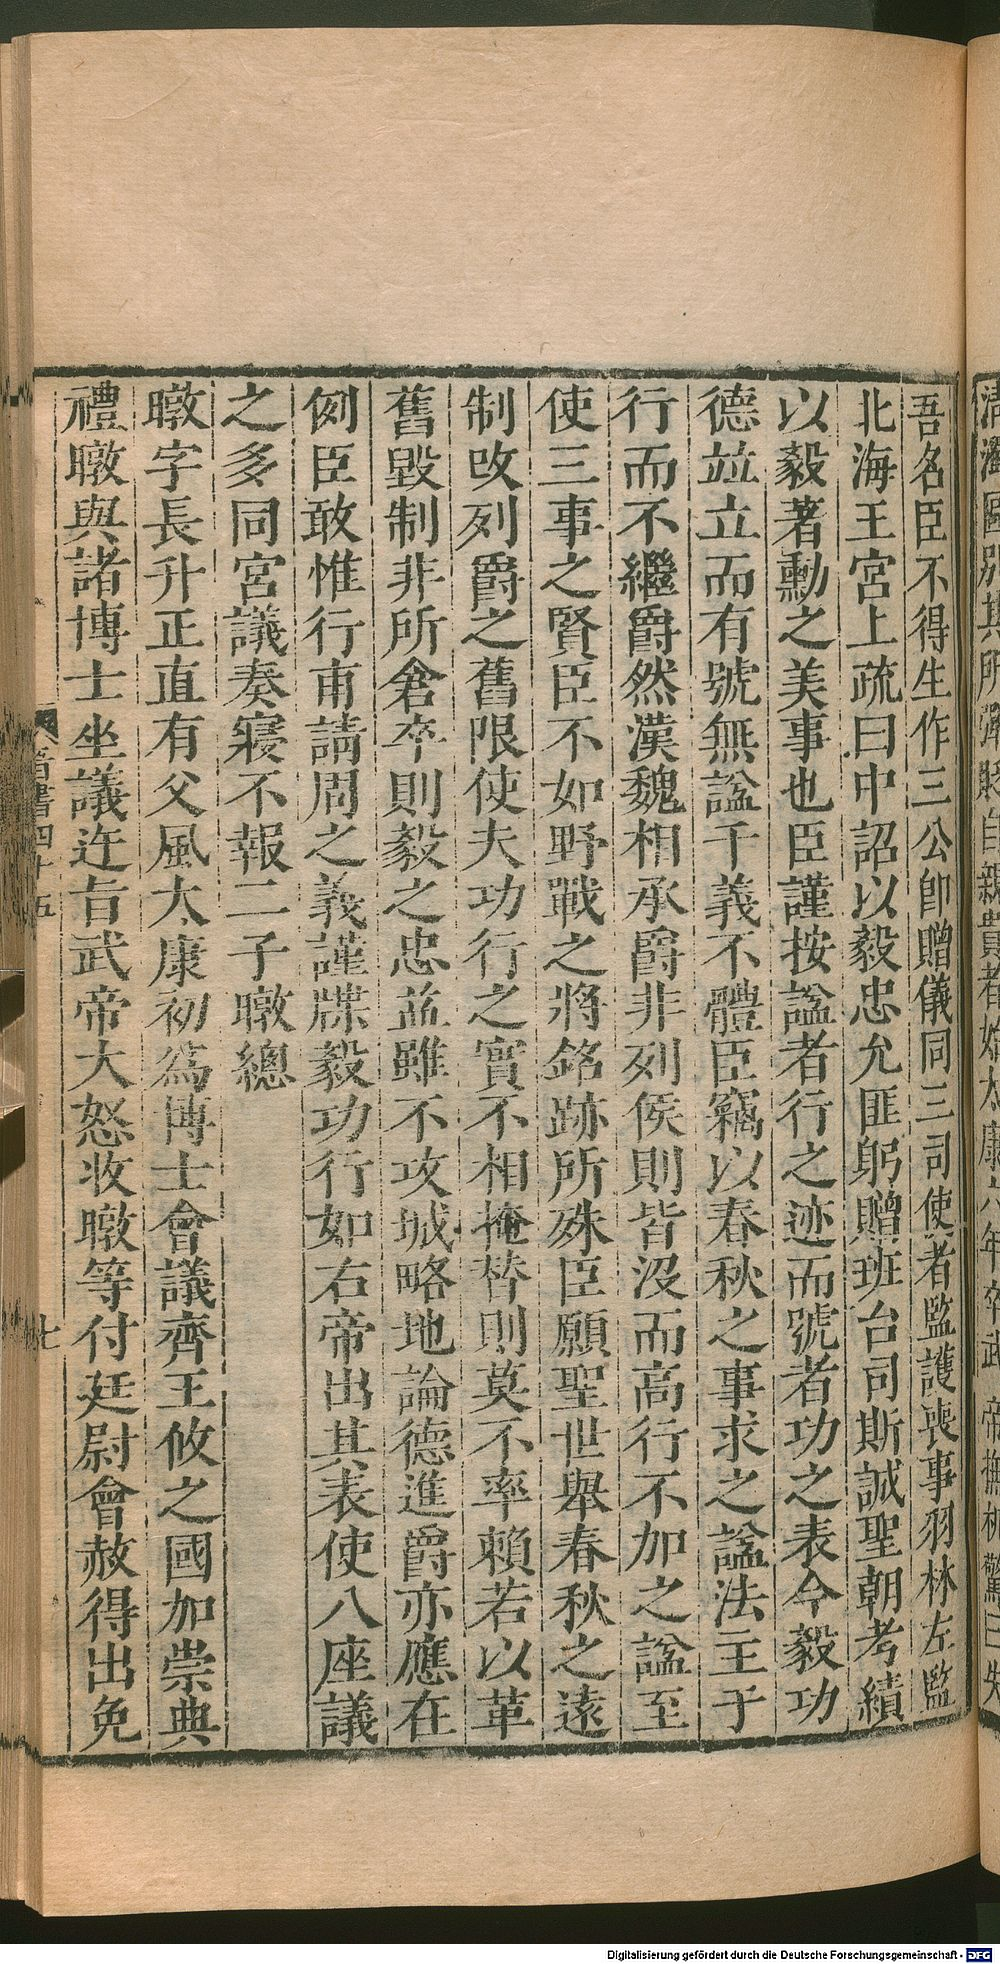 吾名臣不得生作三公卽贈儀同三司使者監護喪事羽林左監
北海王宮上疏曰中詔以毅忠允匪躬贈班台司斯誠聖朝考績
以毅著勳之美事也臣謹按謚者行之迹而號者功之表今毅功
德並立而有號無謚于義不體臣竊以春秋之事求之謚法主于
行而不繼爵然漢魏相承爵非列侯則皆沒而高行不加之謚至
使三事之賢臣不如野戰之將銘跡所殊臣願聖世舉春秋之遠
制改列爵之舊限使夫功行之實不相掩替則莫不率賴若以革
舊毀制非所倉卒則毅之忠益雖不攻城略地論德進爵亦應在
例臣敢惟行甫請周之義謹牒毅功行如右帝出其表使八座議
之多同宮議奏寢不報二子暾總
暾字長升正直有父風太康初爲博士會議齊王攸之國加崇典
禮暾與諸博士坐議迕旨武帝大怒收暾等付廷尉會赦得出免
晉書四十五
七
Digitalisierung gefördert durch die Deutsche Forschungsgemeinschaft - DFG